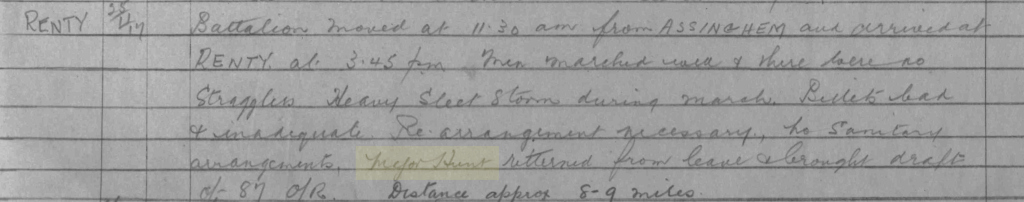 RENTY 25/4/17 Battalion moved at 11.30 am from ASSINGHEM and arrived at
RENTY at 3.45 pm Men marched well & there were no
Stragglers Heavy Sleet Storm during march. Billets bad
& inadequate Re-arrangement necessary, no Sanitary
arrangements, Major Hunt returned from leave & brought draft
of 87 O/R. Distance approx 8-9 miles.